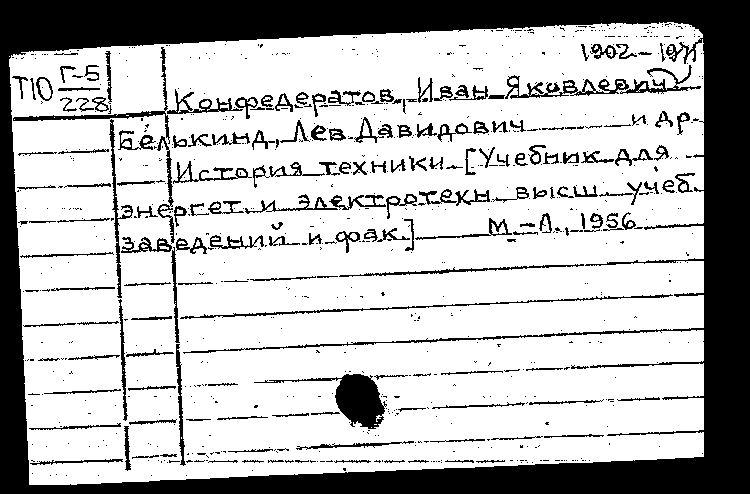 1902-1975
Т10 Г-5
228
Конфедератов, Иван Яковлевич
Белькинд, Лев Давидович и др.
История техники. [Учебник для
энергет. и электротехн. высш. учеб.
заведений и фак.] М.-Л., 1956